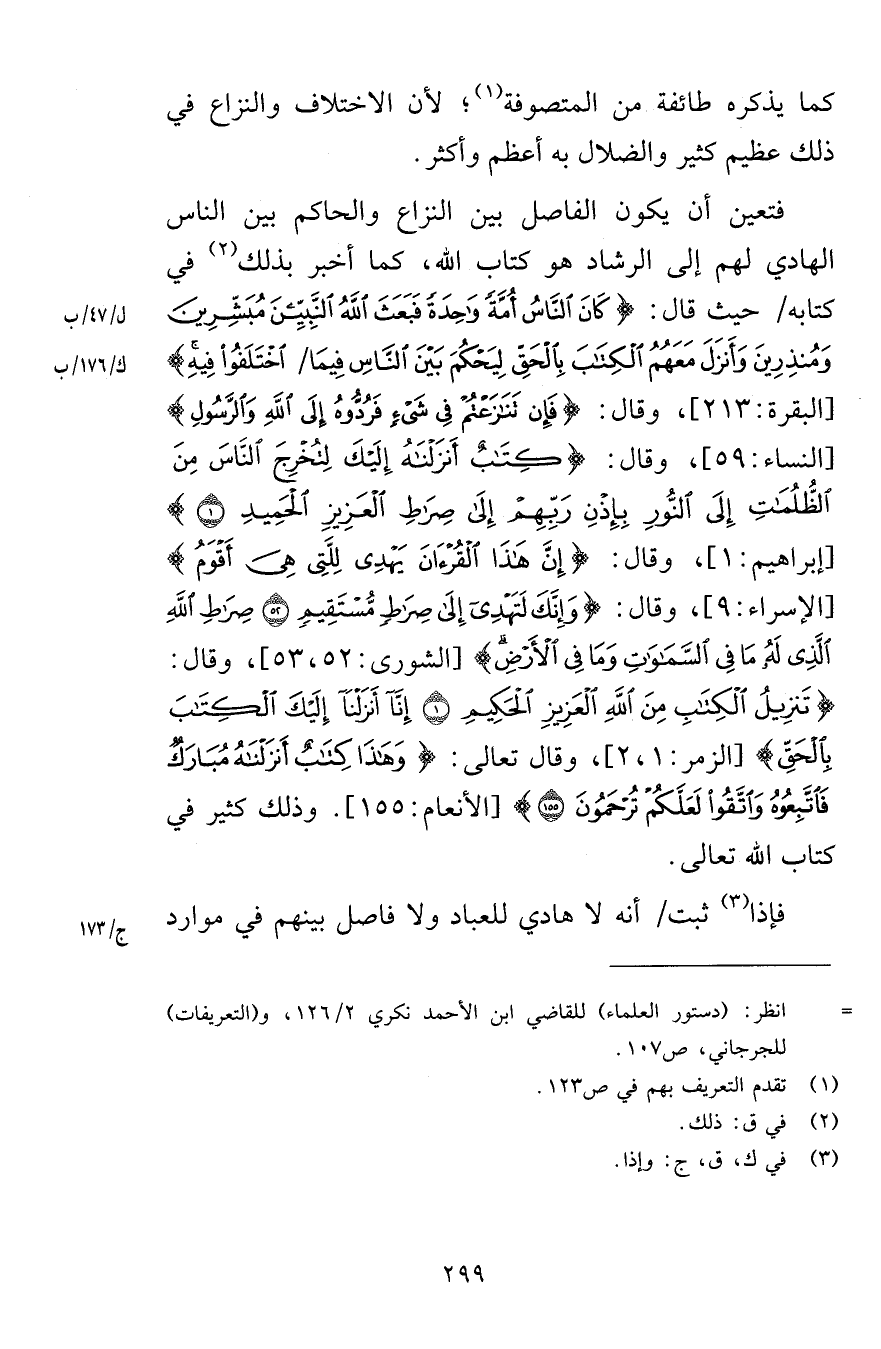 كما يذكره طائفة من المتصوفة(١)؛ لأن الاختلاف والنزاع في
ذلك عظيم كثير والضلال به أعظم وأكثر.
فتعين أن يكون الفاصل بين النزاع والحاكم بين الناس
الهادي لهم إلى الرشاد هو كتاب الله، كما أخبر بذلك(٢) في
كتابه/ حيث قال: ﴿كَانَ ٱلنَّاسُ أُمَّةً وَٰحِدَةً فَبَعَثَ ٱللَّهُ ٱلنَّبِيِّـۧنَ مُبَشِّرِينَ
ل/٤٧/ب
وَمُنذِرِينَ وَأَنزَلَ مَعَهُمُ ٱلْكِتَٰبَ بِٱلْحَقِّ لِيَحْكُمَ بَيْنَ ٱلنَّاسِ فِيمَا/ ٱخْتَلَفُوا۟ فِيهِۚ﴾
ك/١٧٦/ب
[البقرة: ٢١٣]، وقال: ﴿فَإِن تَنَٰزَعْتُمْ فِى شَىْءٍ فَرُدُّوهُ إِلَى ٱللَّهِ وَٱلرَّسُولِ﴾
[النساء: ٥٩]، وقال: ﴿كِتَٰبٌ أَنزَلْنَٰهُ إِلَيْكَ لِتُخْرِجَ ٱلنَّاسَ مِنَ
ٱلظُّلُمَٰتِ إِلَى ٱلنُّورِ بِإِذْنِ رَبِّهِمْ إِلَىٰ صِرَٰطِ ٱلْعَزِيزِ ٱلْحَمِيدِ ١﴾
[إبراهيم: ١]، وقال: ﴿إِنَّ هَٰذَا ٱلْقُرْءَانَ يَهْدِى لِلَّتِى هِىَ أَقْوَمُ﴾
[الإسراء: ٩]، وقال: ﴿وَإِنَّكَ لَتَهْدِىٓ إِلَىٰ صِرَٰطٍ مُّسْتَقِيمٍ ٥٢ صِرَٰطِ ٱللَّهِ
ٱلَّذِى لَهُۥ مَا فِى ٱلسَّمَٰوَٰتِ وَمَا فِى ٱلْأَرْضِۗ﴾ [الشورى: ٥٢، ٥٣]، وقال:
﴿تَنزِيلُ ٱلْكِتَٰبِ مِنَ ٱللَّهِ ٱلْعَزِيزِ ٱلْحَكِيمِ ١ إِنَّآ أَنزَلْنَآ إِلَيْكَ ٱلْكِتَٰبَ
بِٱلْحَقِّ﴾ [الزمر: ١، ٢]، وقال تعالى: ﴿وَهَٰذَا كِتَٰبٌ أَنزَلْنَٰهُ مُبَارَكٌ
فَٱتَّبِعُوهُ وَٱتَّقُوا۟ لَعَلَّكُمْ تُرْحَمُونَ ١٥٥﴾ [الأنعام: ١٥٥]. وذلك كثير في
كتاب الله تعالى.
فإذا(٣) ثبت/ أنه لا هادي للعباد ولا فاصل بينهم في موارد
ج/١٧٣
= انظر: (دستور العلماء) للقاضي ابن الأحمد نكري ١٢٦/٢، و(التعريفات)
للجرجاني، ص١٠٧.
(١) تقدم التعريف بهم في ص١٢٣.
(٢) في ق: ذلك.
(٣) في ك، ق، ج: وإذا.
٢٩٩